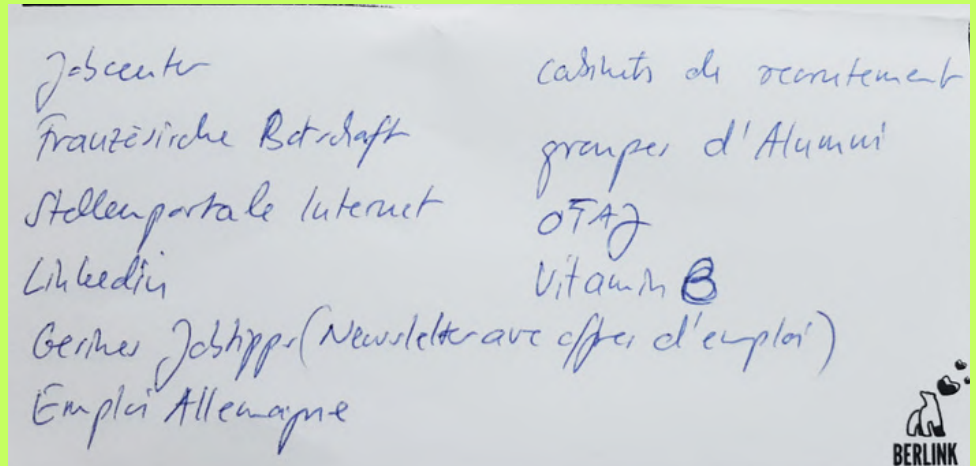 Jobcenter
Französische Botschaft
Stellenportale Internet
Linkedin
Berliner Jobtipps (Newsletter avec offres d'emploi)
Emploi Allemagne
cabinets de recrutement
groupes d'Alumni
OFAJ
Vitamin B
BERLINK